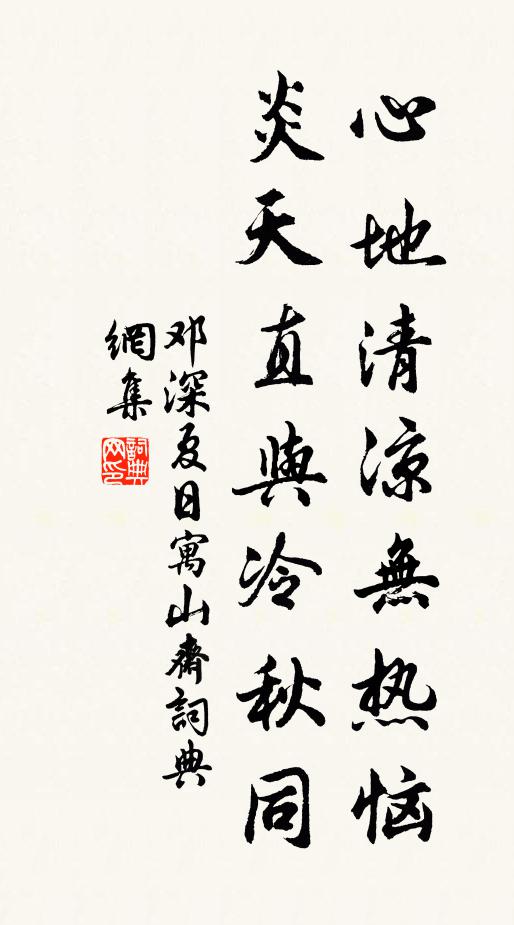 心地清涼無热恼
炎天直與冷秋同
邓深夏日寓山齋詞典
網集
詞典网印